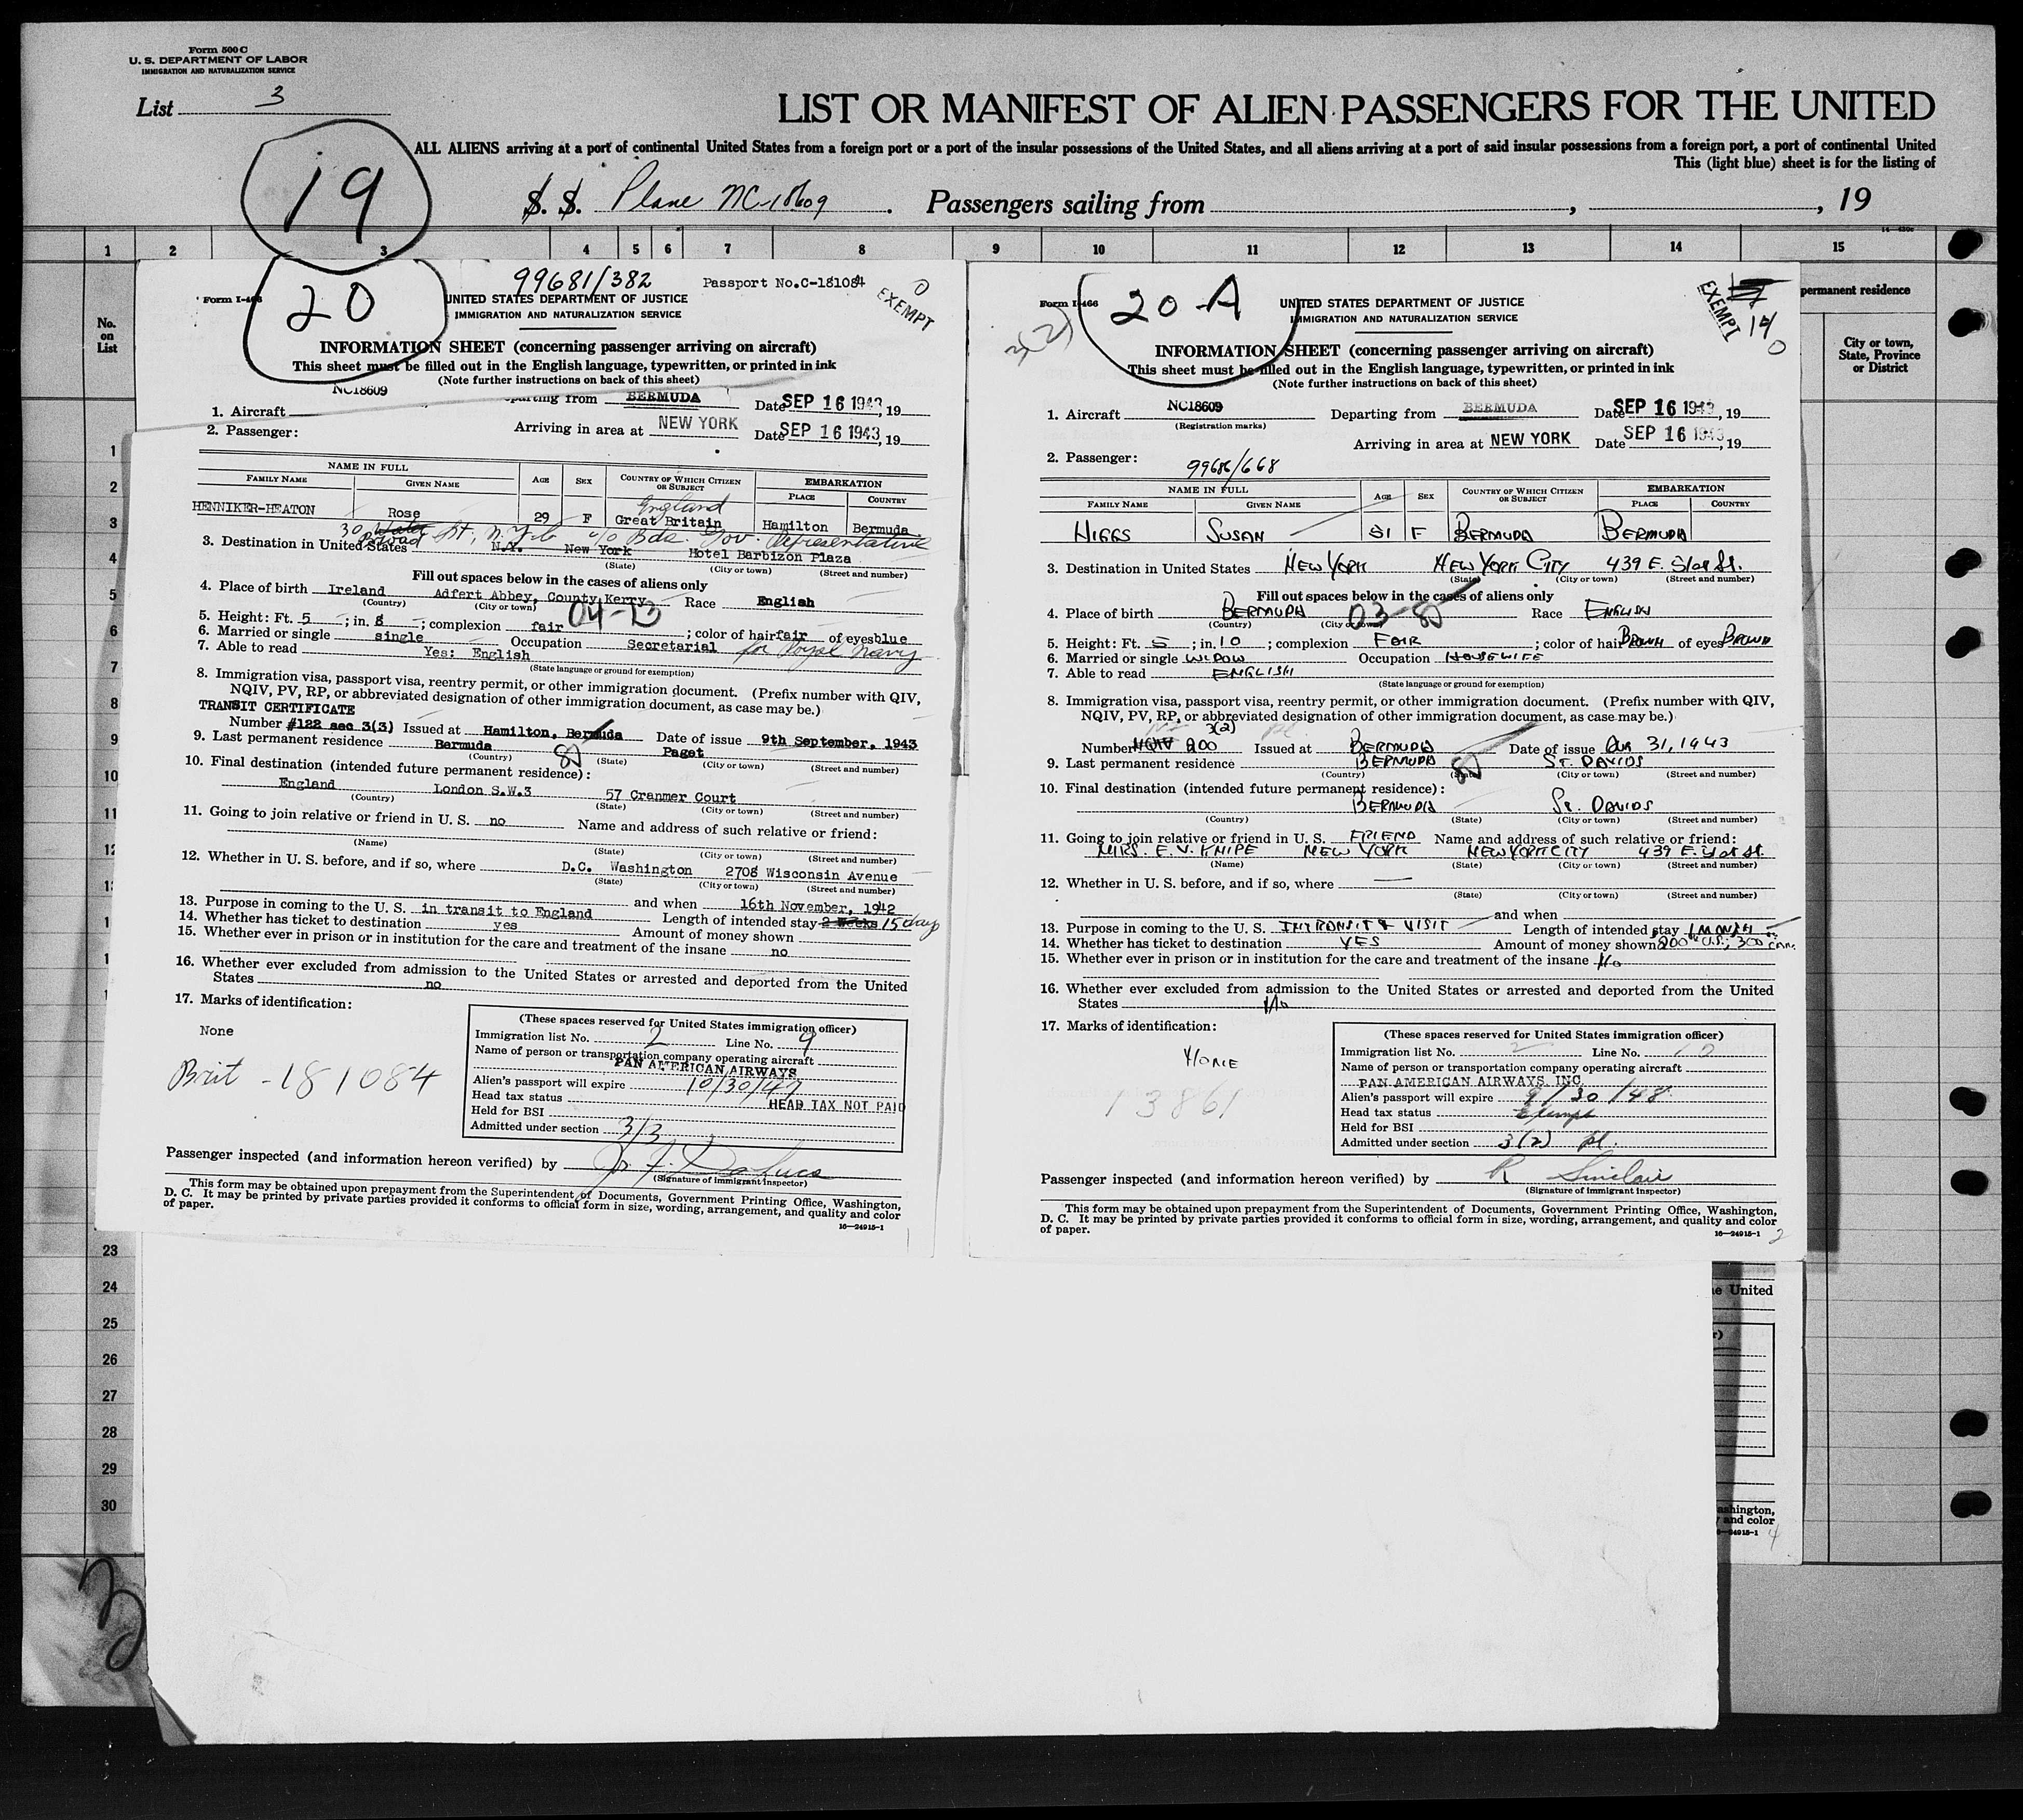 Form 500 C
U. S. DEPARTMENT OF LABOR
IMMIGRATION AND NATURALIZATION SERVICE
List 3
LIST OR MANIFEST OF ALIEN PASSENGERS FOR THE UNITED
ALL ALIENS arriving at a port of continental United States from a foreign port or a port of the insular possessions of the United States, and all aliens arriving at a port of said insular possessions from a foreign port, a port of continental United
This (light blue) sheet is for the listing of
19
S. S. Plane NC-18609. Passengers sailing from , , 19
1 2 3 4 5 6 7 8 9 10 11 12 13 14 15
No. on List
permanent residence
City or town, State, Province or District
1
2
3
4
5
6
7
8
9
10
11
12
23
24
25
26
27
28
29
30
99681/382 Passport No.C-181084 0
Form I-466
20
EXEMPT
UNITED STATES DEPARTMENT OF JUSTICE
IMMIGRATION AND NATURALIZATION SERVICE
INFORMATION SHEET (concerning passenger arriving on aircraft)
This sheet must be filled out in the English language, typewritten, or printed in ink
(Note further instructions on back of this sheet)
1. Aircraft NC18609 parting from BERMUDA Date SEP 16 1943, 19
2. Passenger: Arriving in area at NEW YORK Date SEP 16 1943, 19
NAME IN FULL AGE SEX COUNTRY OF WHICH CITIZEN OR SUBJECT EMBARKATION
FAMILY NAME GIVEN NAME PLACE COUNTRY
England
HENNIKER-HEATON Rose 29 F Great Britain Hamilton Bermuda
30 Broad St., N.Y.C. c/o Bda. Gov. Representative
3. Destination in United States N.Y. New York Hotel Barbizon Plaza
(State) (City or town) (Street and number)
Fill out spaces below in the cases of aliens only
4. Place of birth Ireland Adfert Abbey, County Kerry Race English
(Country) (City or town) 04-13
5. Height: Ft. 5; in. 8; complexion fair; color of hair fair of eyes blue
6. Married or single single Occupation Secretarial for Royal Navy
7. Able to read Yes: English
(State language or ground for exemption)
8. Immigration visa, passport visa, reentry permit, or other immigration document. (Prefix number with QIV,
NQIV, PV, RP, or abbreviated designation of other immigration document, as case may be.)
TRANSIT CERTIFICATE
Number #122 sec 3(3) Issued at Hamilton, Bermuda Date of issue 9th September, 1943
9. Last permanent residence Bermuda Paget
(Country) (State) (City or town) (Street and number)
10. Final destination (intended future permanent residence):
England London S.W.3 57 Cranmer Court
(Country) (State) (City or town) (Street and number)
11. Going to join relative or friend in U. S. no Name and address of such relative or friend:
(Name) (State) (City or town) (Street and number)
12. Whether in U. S. before, and if so, where D.C. Washington 2708 Wisconsin Avenue
(State) (City or town) (Street and number)
and when 16th November, 1942
13. Purpose in coming to the U. S. in transit to England Length of intended stay 2 weeks 15 days
14. Whether has ticket to destination yes Amount of money shown
15. Whether ever in prison or in institution for the care and treatment of the insane no
16. Whether ever excluded from admission to the United States or arrested and deported from the United
States no
17. Marks of identification:
None
Brit - 181084
(These spaces reserved for United States immigration officer)
Immigration list No. 2 Line No. 9
Name of person or transportation company operating aircraft
PAN AMERICAN AIRWAYS
Alien's passport will expire 10/30/47
Head tax status HEAD TAX NOT PAID
Held for BSI
Admitted under section 3/3
Passenger inspected (and information hereon verified) by
(Signature of immigrant inspector)
This form may be obtained upon prepayment from the Superintendent of Documents, Government Printing Office, Washington,
D. C. It may be printed by private parties provided it conforms to official form in size, wording, arrangement, and quality and color
of paper.
16—24915-1
Form I-466
20-A
3(2)
EXEMPT
0
UNITED STATES DEPARTMENT OF JUSTICE
IMMIGRATION AND NATURALIZATION SERVICE
INFORMATION SHEET (concerning passenger arriving on aircraft)
This sheet must be filled out in the English language, typewritten, or printed in ink
(Note further instructions on back of this sheet)
1. Aircraft NC18609 Departing from BERMUDA Date SEP 16 1943, 19
(Registration marks)
Arriving in area at NEW YORK Date SEP 16 1943, 19
2. Passenger: 99686/668
NAME IN FULL AGE SEX COUNTRY OF WHICH CITIZEN OR SUBJECT EMBARKATION
FAMILY NAME GIVEN NAME PLACE COUNTRY
HIGGS SUSAN 51 F BERMUDA BERMUDA
3. Destination in United States NEW YORK NEW YORK CITY 439 E. 51st St.
(State) (City or town) (Street and number)
Fill out spaces below in the cases of aliens only
4. Place of birth BERMUDA Race ENGLISH
(Country) (City or town)
5. Height: Ft. 5; in. 10; complexion FAIR; color of hair BROWN of eyes BROWN
6. Married or single WIDOW Occupation HOUSEWIFE
7. Able to read ENGLISH
(State language or ground for exemption)
8. Immigration visa, passport visa, reentry permit, or other immigration document. (Prefix number with QIV,
NQIV, PV, RP, or abbreviated designation of other immigration document, as case may be.)
3(2)
Number NQIV 200 Issued at BERMUDA Date of issue Aug 31, 1943
9. Last permanent residence BERMUDA ST. DAVIDS
(Country) (State) (City or town) (Street and number)
10. Final destination (intended future permanent residence):
BERMUDA St. DAVIDS
(Country) (State) (City or town) (Street and number)
11. Going to join relative or friend in U. S. FRIEND Name and address of such relative or friend:
MRS. E. V. KNIPE NEW YORK NEW YORK CITY 439 E. 51st St.
(Name) (State) (City or town) (Street and number)
12. Whether in U. S. before, and if so, where —
(State) (City or town) (Street and number)
and when
13. Purpose in coming to the U. S. IN TRANSIT & VISIT Length of intended stay 1 MONTH
14. Whether has ticket to destination YES Amount of money shown 200 U.S.; 300 Can.
15. Whether ever in prison or in institution for the care and treatment of the insane No
16. Whether ever excluded from admission to the United States or arrested and deported from the United
States No
17. Marks of identification:
NONE
13861
(These spaces reserved for United States immigration officer)
Immigration list No. 2 Line No. 10
Name of person or transportation company operating aircraft
PAN AMERICAN AIRWAYS, INC.
Alien's passport will expire 9/30/48
Head tax status Exempt
Held for BSI
Admitted under section 3(2) pl.
Passenger inspected (and information hereon verified) by R Sinclair
(Signature of immigrant inspector)
This form may be obtained upon prepayment from the Superintendent of Documents, Government Printing Office, Washington,
D. C. It may be printed by private parties provided it conforms to official form in size, wording, arrangement, and quality and color
of paper.
16—24915-1 2
e United
ashington,
and color
24915-1 4
3